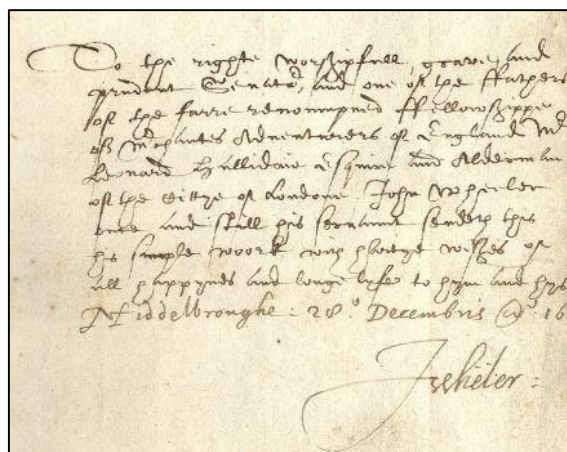 To the righte worshipfull, grave, and
prudent Senato^r, and one of the ffathers
of the farre renoumpned ffellowshippe
of M^rchantes Adventurers of England M^r
Leonard Hallidaie Esquire and Alderman
of the Cittye of London. John Wheeler
once and still his servaunt sendeth this
his simple woork with hartye wishes of
all happynes and longe lyfe to hym and hys
Middelbroughe: 28.° Decembris @°: 16
JWheeler: